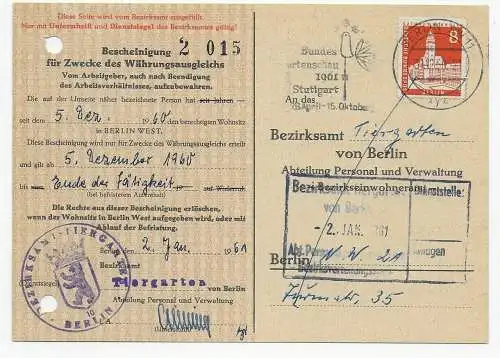 Diese Seite wird vom Bezirksamt ausgefüllt.
Nur mit Unterschrift und Dienstsiegel des Bezirksamtes gültig!
Bescheinigung 2 015
für Zwecke des Währungsausgleichs
Vom Arbeitgeber, auch nach Beendigung
des Arbeitsverhältnisses, aufzubewahren.
Die auf der Umseite näher bezeichnete Person hat seit Jahren
seit dem 5. Dez. 1960 den berechtigten Wohnsitz
in BERLIN WEST.
Diese Bescheinigung wird nur für Zwecke des Währungsausgleichs erteilt
und gilt ab 5. Dezember 1960
bis Ende der Tätigkeit auf Widerruf.
(bei befristetem Aufenthalt)
Die Rechte aus dieser Bescheinigung erlöschen,
wenn der Wohnsitz in Berlin West aufgegeben wird, oder mit
Ablauf der Befristung.
Berlin, den 2. Jan. 1961
Bezirksamt
Tiergarten von Berlin
Abteilung Personal und Verwaltung
BEZIRKSAMT TIERGARTEN
BERLIN
10
Bundes
gartenschau
1961
Stuttgart
April-15. Oktober
8
BERLIN
An das
Bezirksamt Tiergarten
von Berlin
Abteilung Personal und Verwaltung
Bezirkseinwohneramt
von Berlin
-2. JAN.
Berlin N.W. 21
Turmstr. 35